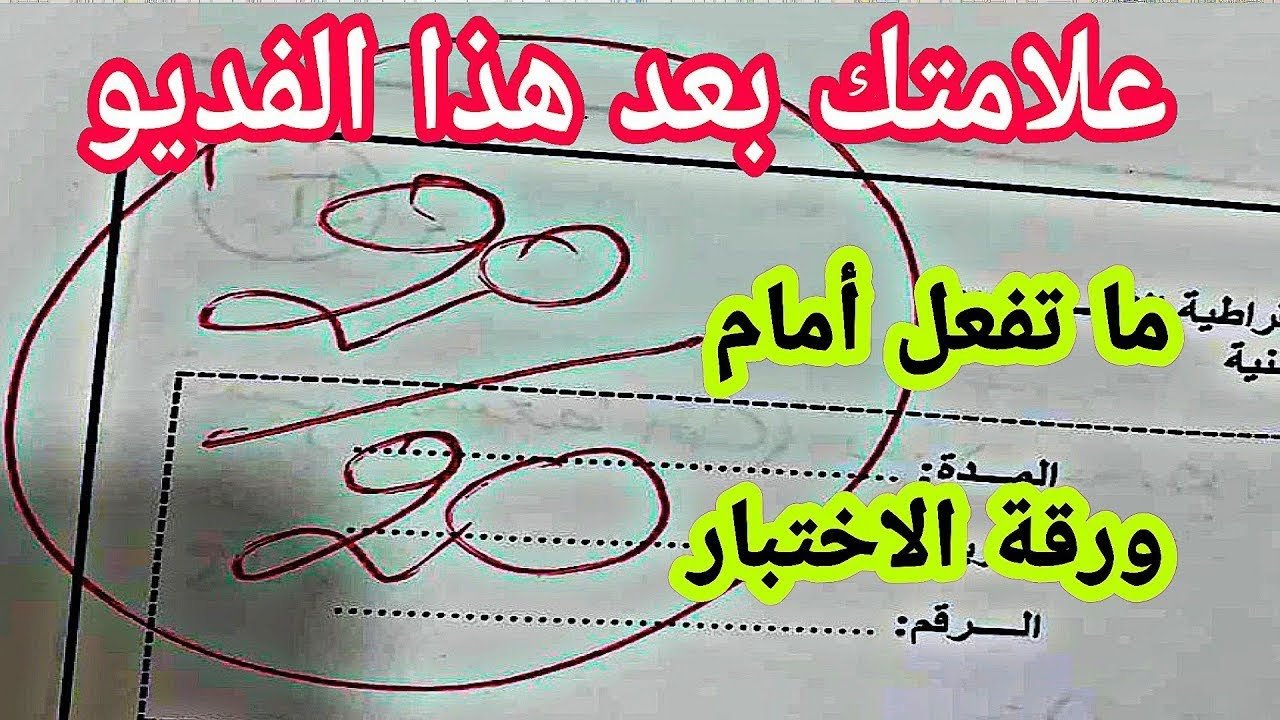 علامتك بعد هذا الفديو
20
20
ما تفعل أمام
ورقة الاختبار
المـــدة: ........................
الـــرقم: ........................